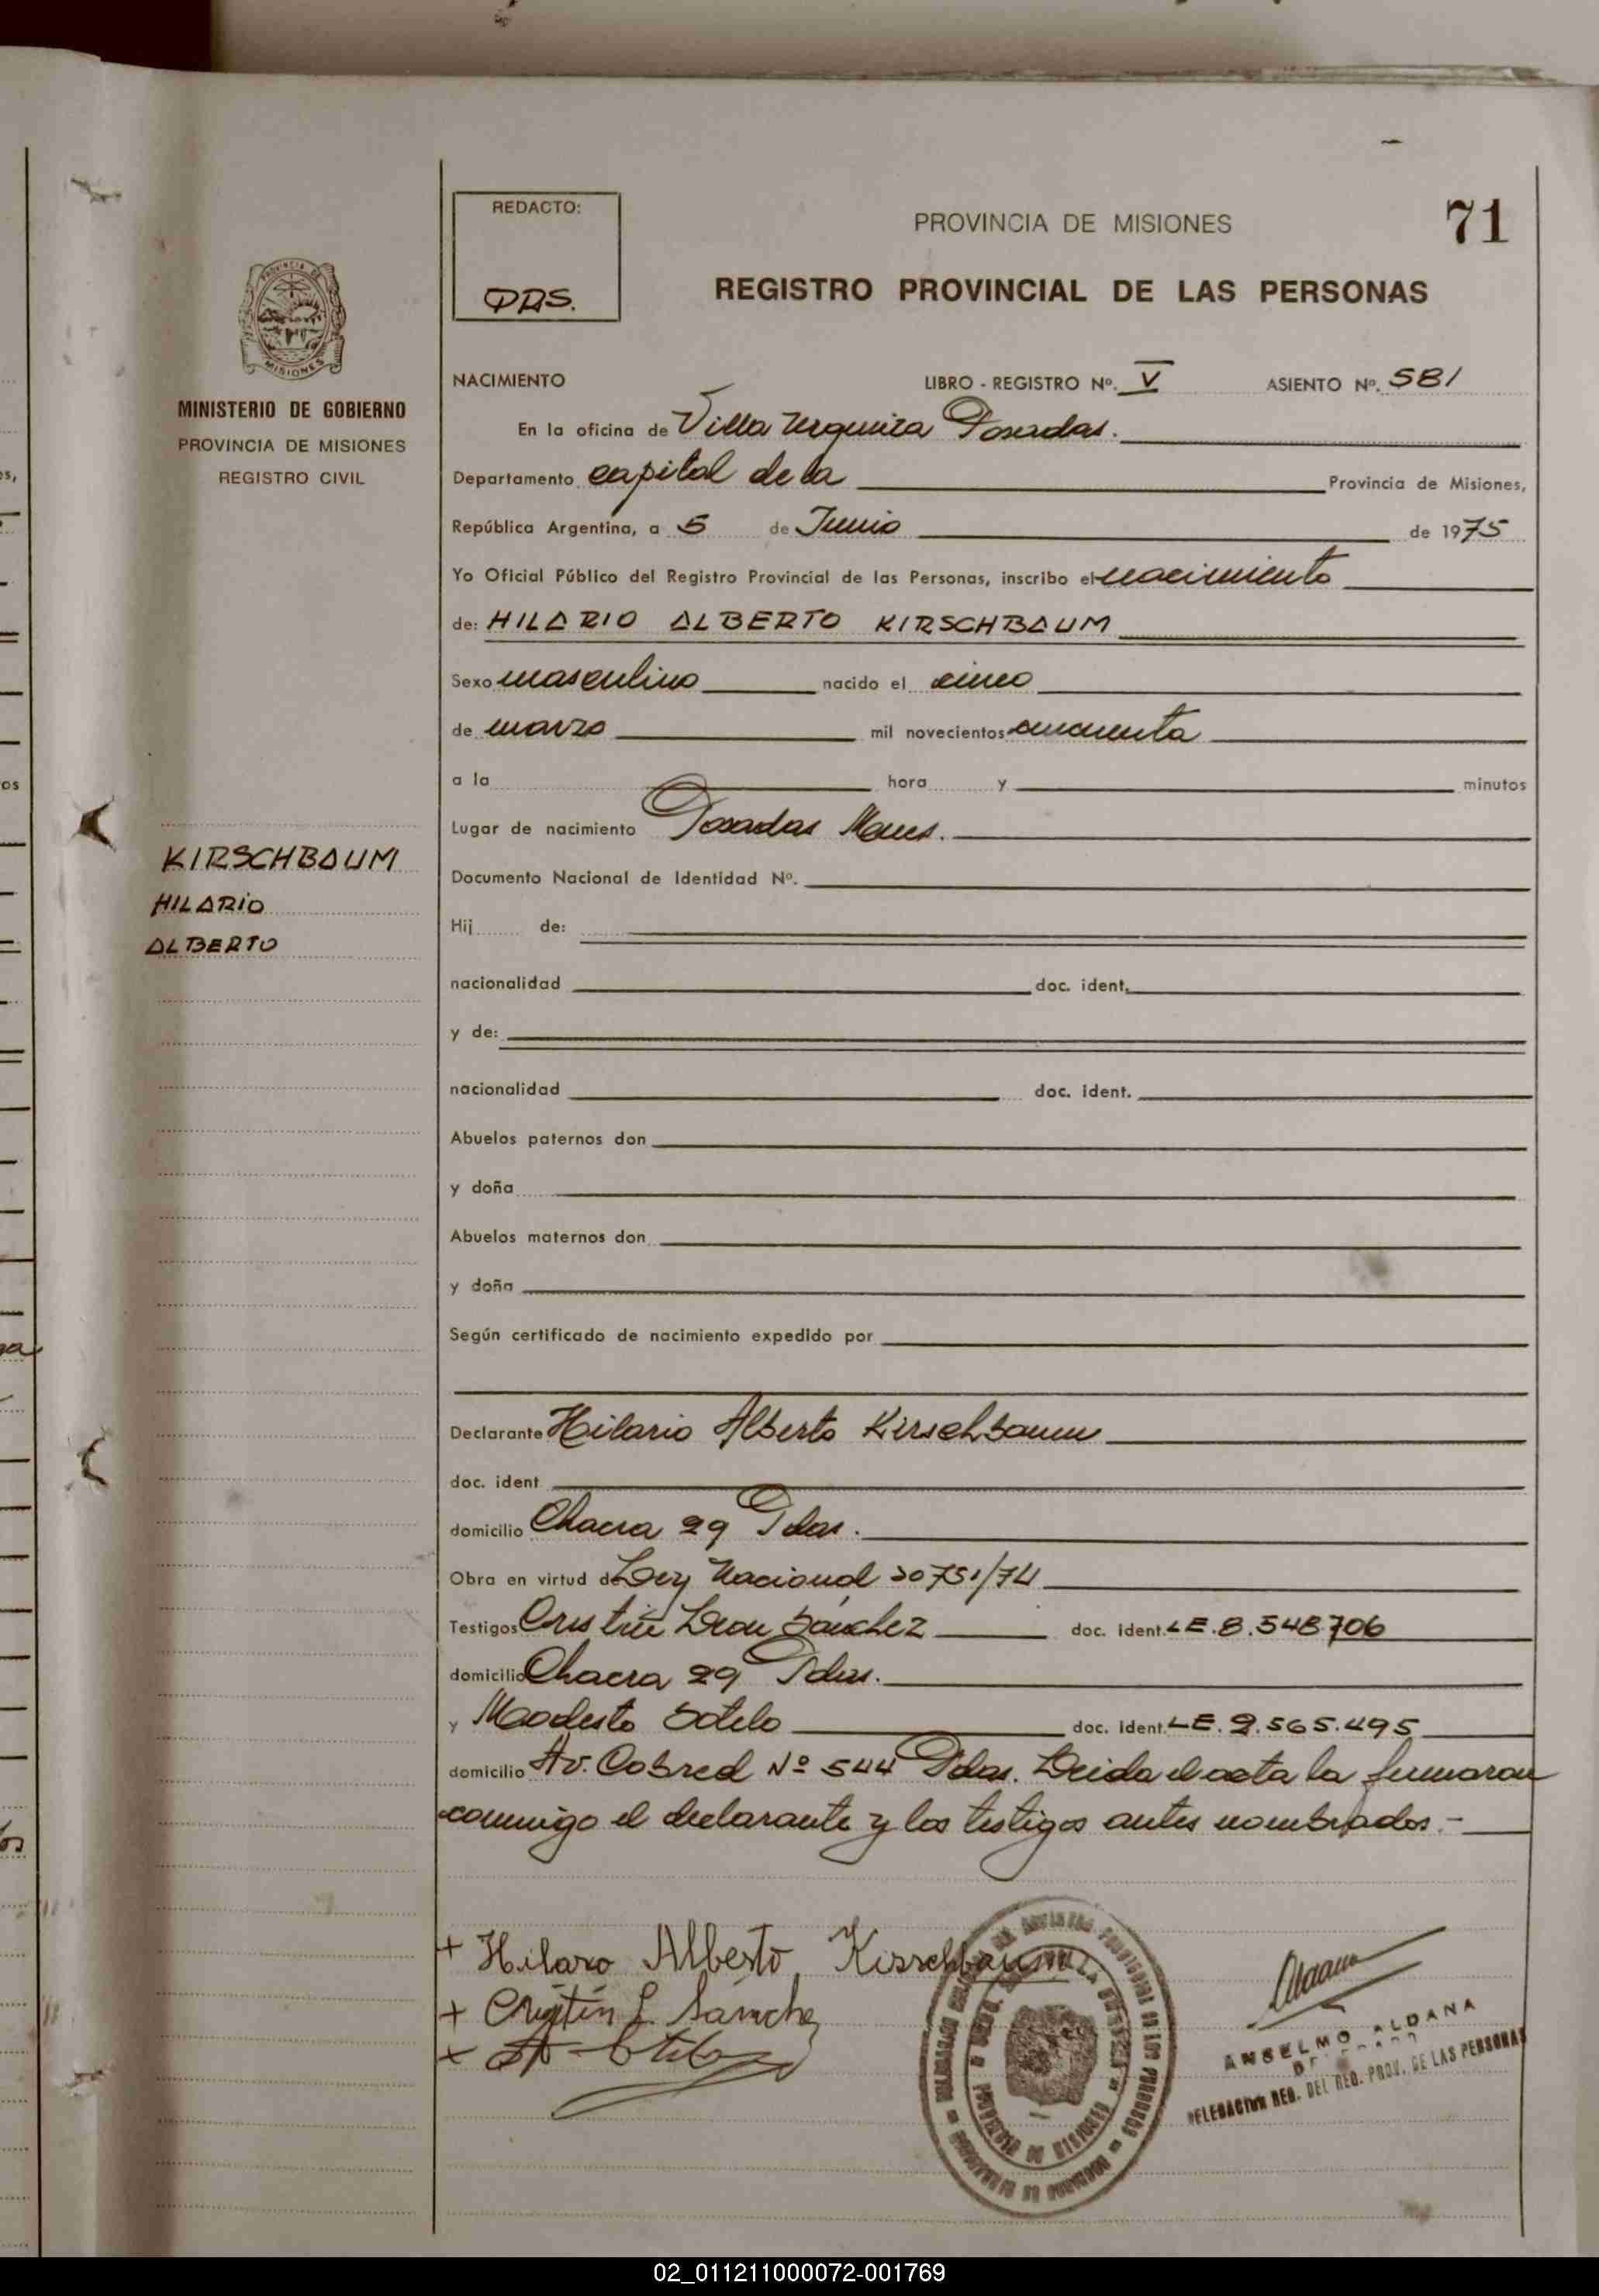 71
REDACTO:
PROVINCIA DE MISIONES
REGISTRO PROVINCIAL DE LAS PERSONAS
PROVINCIA DE
MISIONES
MINISTERIO DE GOBIERNO
PROVINCIA DE MISIONES
REGISTRO CIVIL
KIRSCHBAUM
HILARIO
ALBERTO
NACIMIENTO LIBRO - REGISTRO Nº. V ASIENTO Nº. 581
En la oficina de Villa Urquiza Posadas.
Departamento capital de la Provincia de Misiones,
República Argentina, a 5 de Junio de 1975
Yo Oficial Público del Registro Provincial de las Personas, inscribo el nacimiento
de: HILARIO ALBERTO KIRSCHBAUM
Sexo masculino nacido el cinco
de marzo mil novecientos cincuenta
a la hora y minutos
Lugar de nacimiento Posadas Mnes.
Documento Nacional de Identidad Nº.
Hij de:
nacionalidad doc. ident.
y de:
nacionalidad doc. ident.
Abuelos paternos don
y doña
Abuelos maternos don
y doña
Según certificado de nacimiento expedido por
Declarante Hilario Alberto Kirschbaum
doc. ident
domicilio Chacra 29 Pdas.
Obra en virtud de Ley Nacional 20751/74
Testigos Cristin Leon Sánchez doc. ident. LE. 8.548.706
domicilio Chacra 29 Pdas.
y Modesto Sotelo doc. ident. LE. 2.565.495
domicilio Av. Cabred Nº 544 Pdas. Leida el acta la firmaron
conmigo el declarante y los testigos antes nombrados.-
+ Hilaro Alberto Kirschbaum
+ Cristín L. Sánchez
ANSELMO ALDANA
DELEGACION REG. DEL REG. PROV. DE LAS PERSONAS
PROVINCIA DE MISIONES
02_011211000072-001769